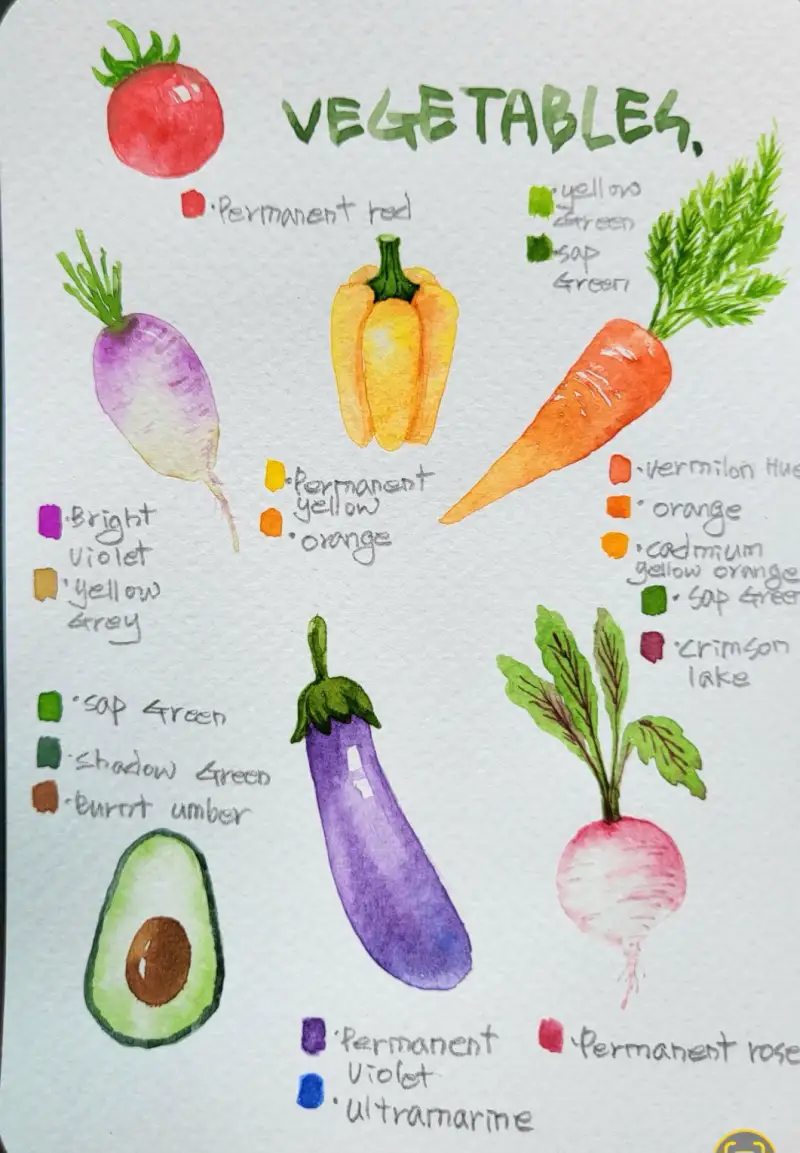 VEGETABLES.
·Permanent red
·yellow
Green
·sap
Green
·Permanent
yellow
·orange
·vermilon Hue
·orange
·cadmium
yellow orange
·sap Green
·crimson
lake
·Bright
violet
·yellow
Grey
·sap Green
·shadow Green
·Burnt umber
·Permanent
violet
·ultramarine
·Permanent rose